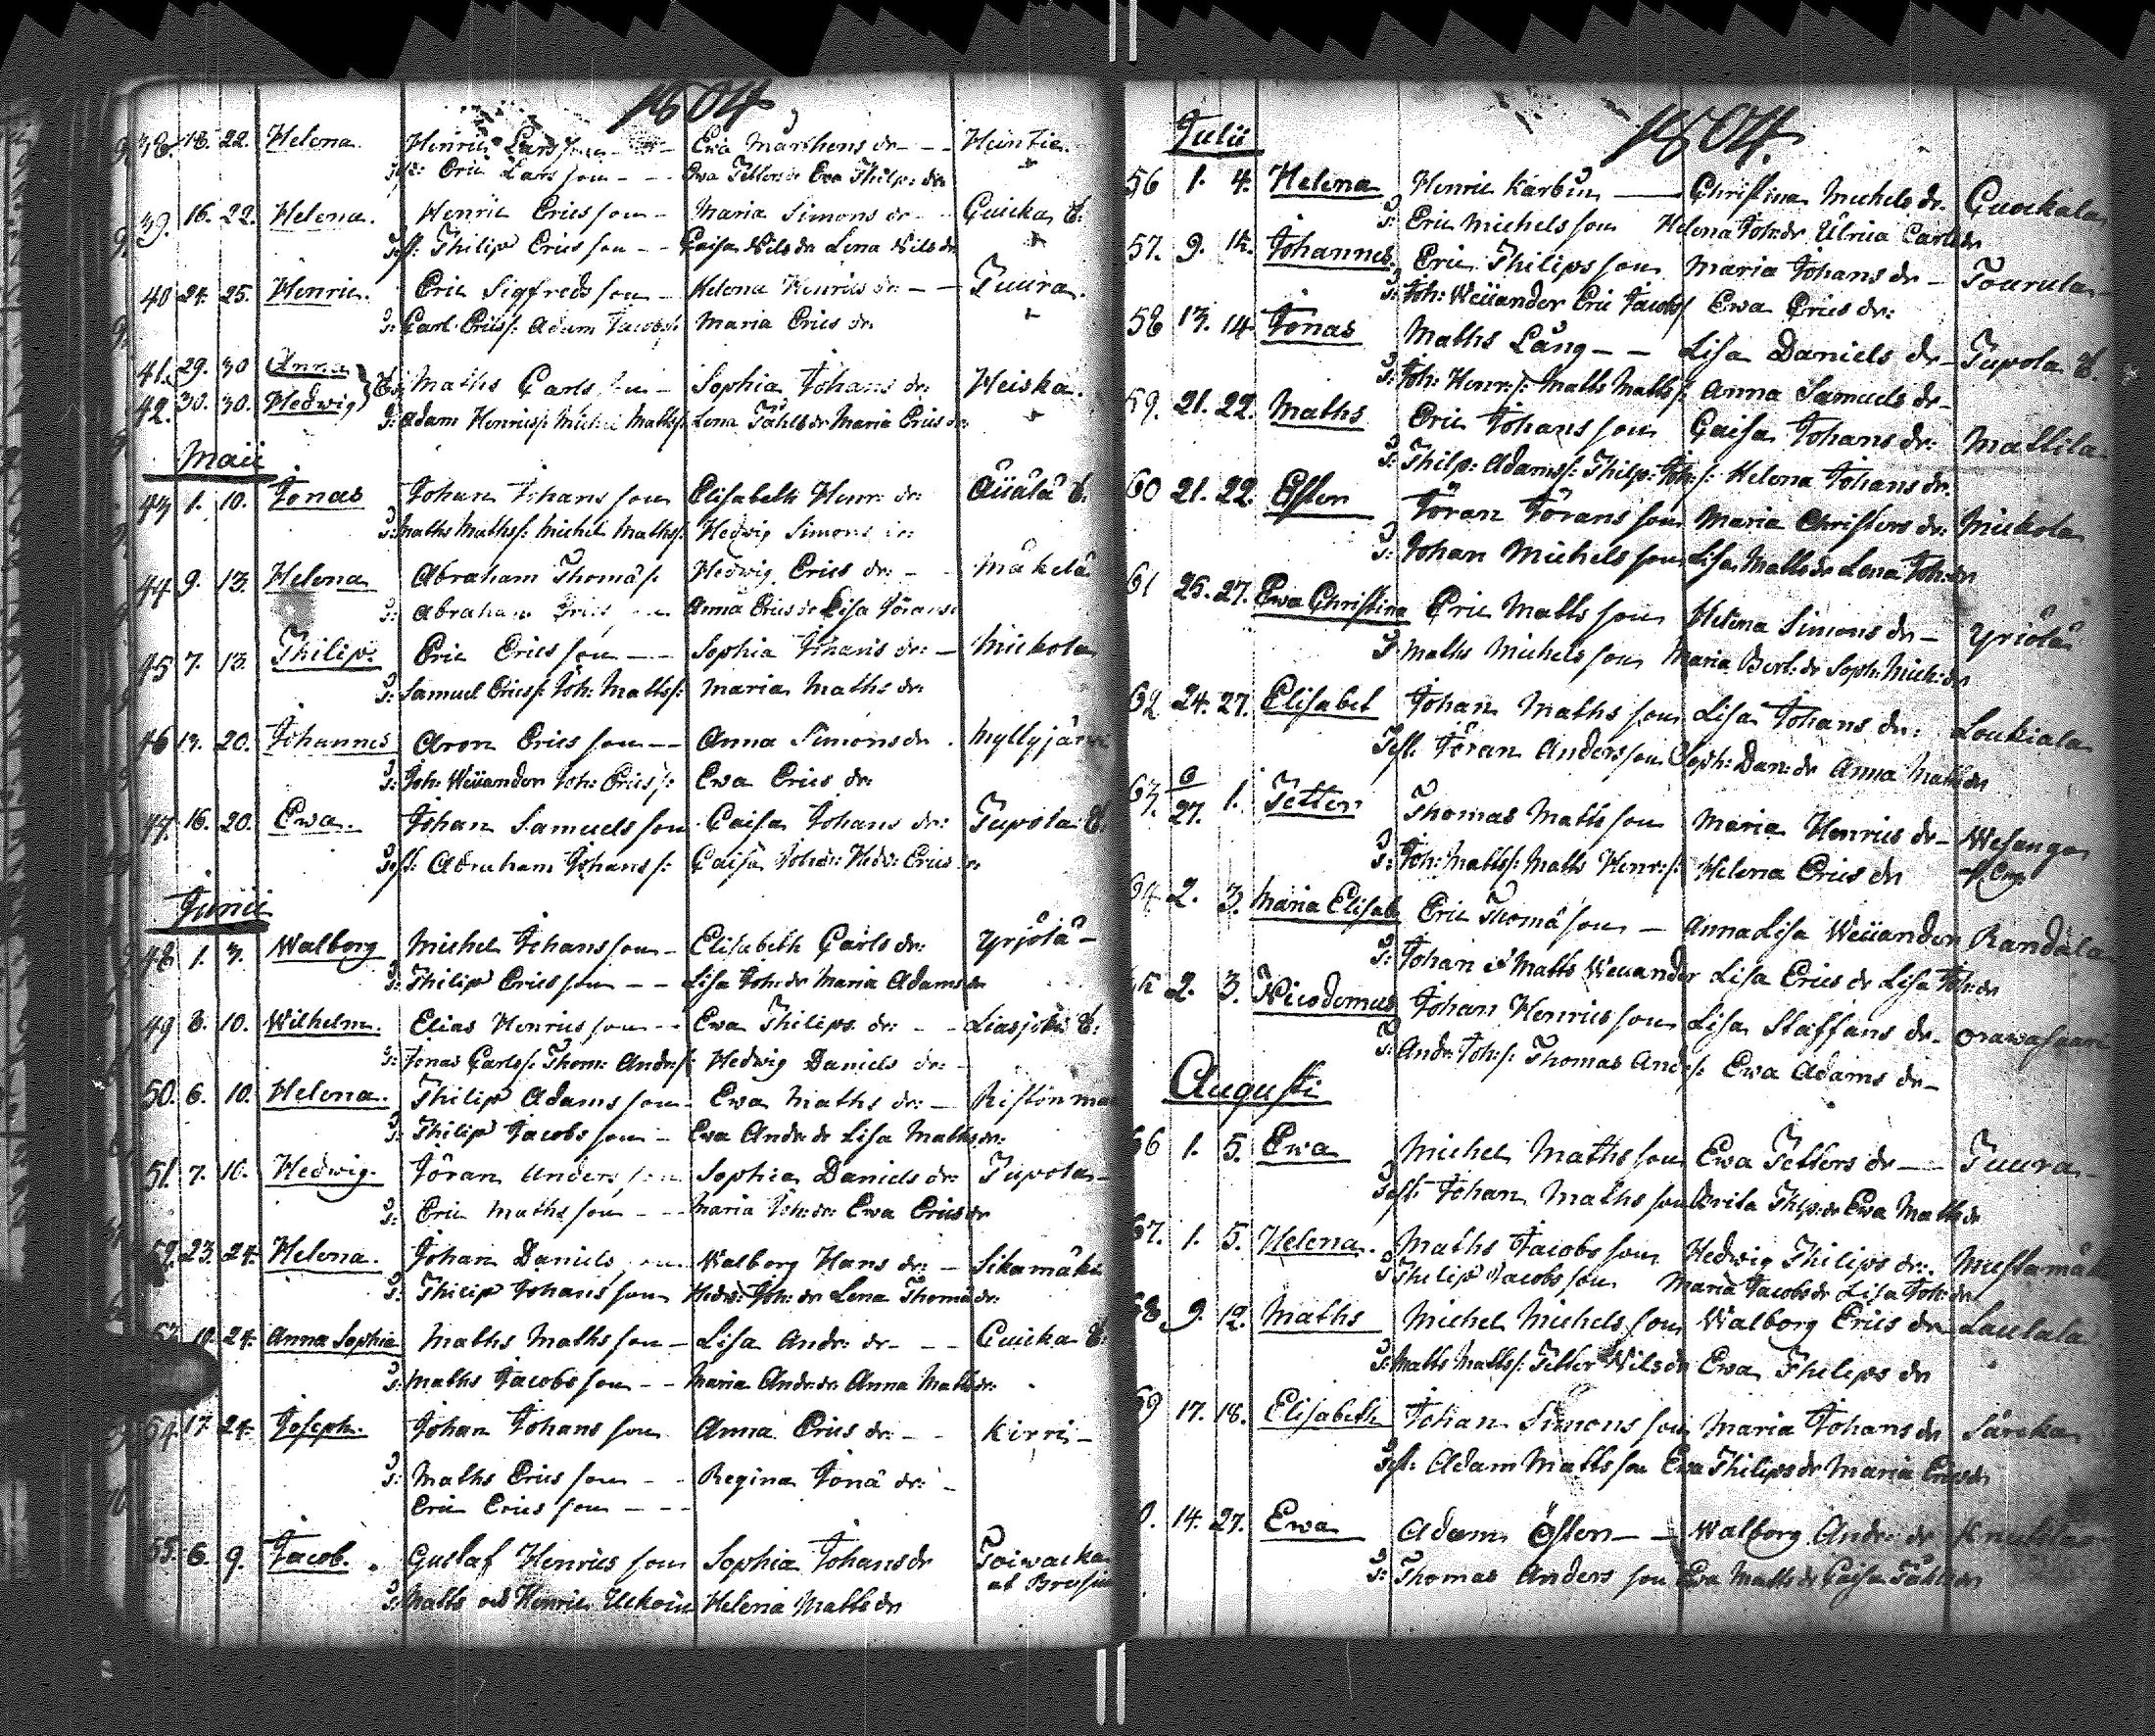 1804
38. 18. 22. Helena. Henric Larsson Ewa Marthens dr Heintie
Eric Larsson Ewa Petters dr Ewa Philip: dr
39. 16. 22. Helena. Henric Ericsson Maria Simons dr Guicka
Test: Philip Ericsson Caisa Nils dr Lena Nils dr
40 24. 25. Henric. Eric Sigfredsson Helena Henrics dr Tuura
T: Carl Erics s: Adam Jacobs s: Maria Erics dr
41. 29. 30 Anna
Maths Carlsson Sophia Johans dr: Heiska.
42. 30. 30. Hedwig
T: Adam Henrics s: Michel Maths s: Lena Påhls dr Maria Erics dr
Maii
43 1. 10. Jonas Johan Johansson Elisabeth Henr: dr
T: Maths Maths s: Michel Maths s: Hedwig Simons dr:
44 9. 13. Helena Abraham Thomæ s: Hedwig Erics dr: Mäkelä
T: Abraham Ericsson Anna Erics dr Lisa Jörans
45 7. 13. Philip: Eric Ericsson Sophia Johans dr: Mickola
T: Samuel Erics s: Joh: Maths s: Maria Maths dr
46 13. 20. Johannes Aron Ericsson Anna Simons dr. Myllyjärvi
T: Joh: Weüander Joh: Erics s: Ewa Erics dr:
47. 16. 20. Ewa. Johan Samuelsson Caisa Johans dr: Tupola
Test: Abraham Johans s: Caisa Joh: dr: Hedw: Erics dr
Junii
48 1. 3. Walborg Michel Johansson Elisabeth Carls dr: Yrjölä
T: Philip Ericsson Lisa Joh: dr Maria Adams dr
49 8. 10. Wilhelm. Elias Henricsson Ewa Philips dr:
T: Jonas Carls s: Thom: Andr: s: Hedwig Daniels dr:
50. 6. 10. Helena. Philip Adamsson Ewa Maths dr:
T: Philip Jacobsson Ewa Andr: dr Lisa Maths dr:
51. 7. 10. Hedwig. Jöran Andersson Sophia Daniels dr: Tupola
T: Eric Mathsson Maria Joh: dr: Ewa Erics dr
52. 23. 24. Helena. Johan Danielsson Walborg Hans dr: Sikamäki
T: Philip Johansson Hedw: Joh: dr Lena Thomæ dr:
53. 19. 24. Anna Sophia Maths Mathsson Lisa Andr: dr Guicka
T: Maths Jacobsson Maria Andr: dr Anna Maths dr:
54. 17 24. Joseph. Johan Johansson Anna Erics dr: Kirri
T: Maths Ericsson Regina Jonæ dr:
Eric Ericsson
55. 6. 9. Jacob. Gustaf Henricsson Sophia Johans dr Toiwacka
T: Matts och Henric Helena Matts dr
1804.
Julii
56 1. 4. Helena Henric Karbin Christina Michels dr. Guockala
T: Eric Michelsson Helena Joh: dr Ulrica Carls dr
57. 9. 14. Johannes. Eric Philipsson Maria Johans dr Tourula
T: Joh: Weüander Eric Jacobs s: Ewa Erics dr:
58 13. 14. Jonas Maths Lång Lisa Daniels dr Tupola
T: Joh: Henr: s: Matts Matts s: Anna Samuels dr
59. 21. 22. Maths Eric Johansson Caisa Johans dr: Mattila
T: Philp: Adams s: Philp: Joh: s: Helena Johans dr.
60 21. 22. Ester Jöran Jöransson Maria Christers dr: Mickola
T: Johan Michelsson Lisa Matts dr Lena Joh: dr
61 25. 27. Ewa Christina Eric Mattsson Helena Simons dr Yriölä
T: Maths Michelsson Maria Bert: dr Soph: Mich: dr
62 24. 27. Elisabet Johan Mathsson Lisa Johans dr: Loukiala
Test. Jöran Andersson Soph: Dan: dr Anna Matts dr
63. 6/27. 1. Petter Thomas Mathsson Maria Henrics dr Wesanga
T: Joh: Matts s: Matts Henr: s: Helena Erics dr
64 2. 3. Maria Elisab: Eric Thomæson Anna Lisa Weüander Randala
T: Johan & Matts Weüander Lisa Erics dr Lisa Joh: dr
65 2. 3. Nicodemus Johan Henricsson Lisa Staffans dr. Orawasaari
T: Andr: Joh: s: Thomas And: s: Ewa Adams dr
Augusti
66 1. 5. Ewa Michel Mathsson Ewa Petters dr Tuura
Test: Johan Mathsson Brita Philp: dr Ewa Matts dr
67. 1. 5. Helena. Maths Jacobsson Hedwig Philips dr: Mustamäki
T: Philip Jacobsson Maria Jacobs dr Lisa Joh: dr
68. 9. 12. Maths Michel Michelsson Walborg Erics dr Lautala
T: Matts Matts s: Petter Nils dr Ewa Philips dr
69 17. 18. Elisabeth Johan Simonsson Maria Johans dr Särcka
Test: Adam Mattsson Ewa Philips dr Maria Erics dr
14. 27. Ewa Adam Öster Walborg Andr: dr Knuttila
T: Thomas Andersson Ewa Matts dr Caisa Påhls dr